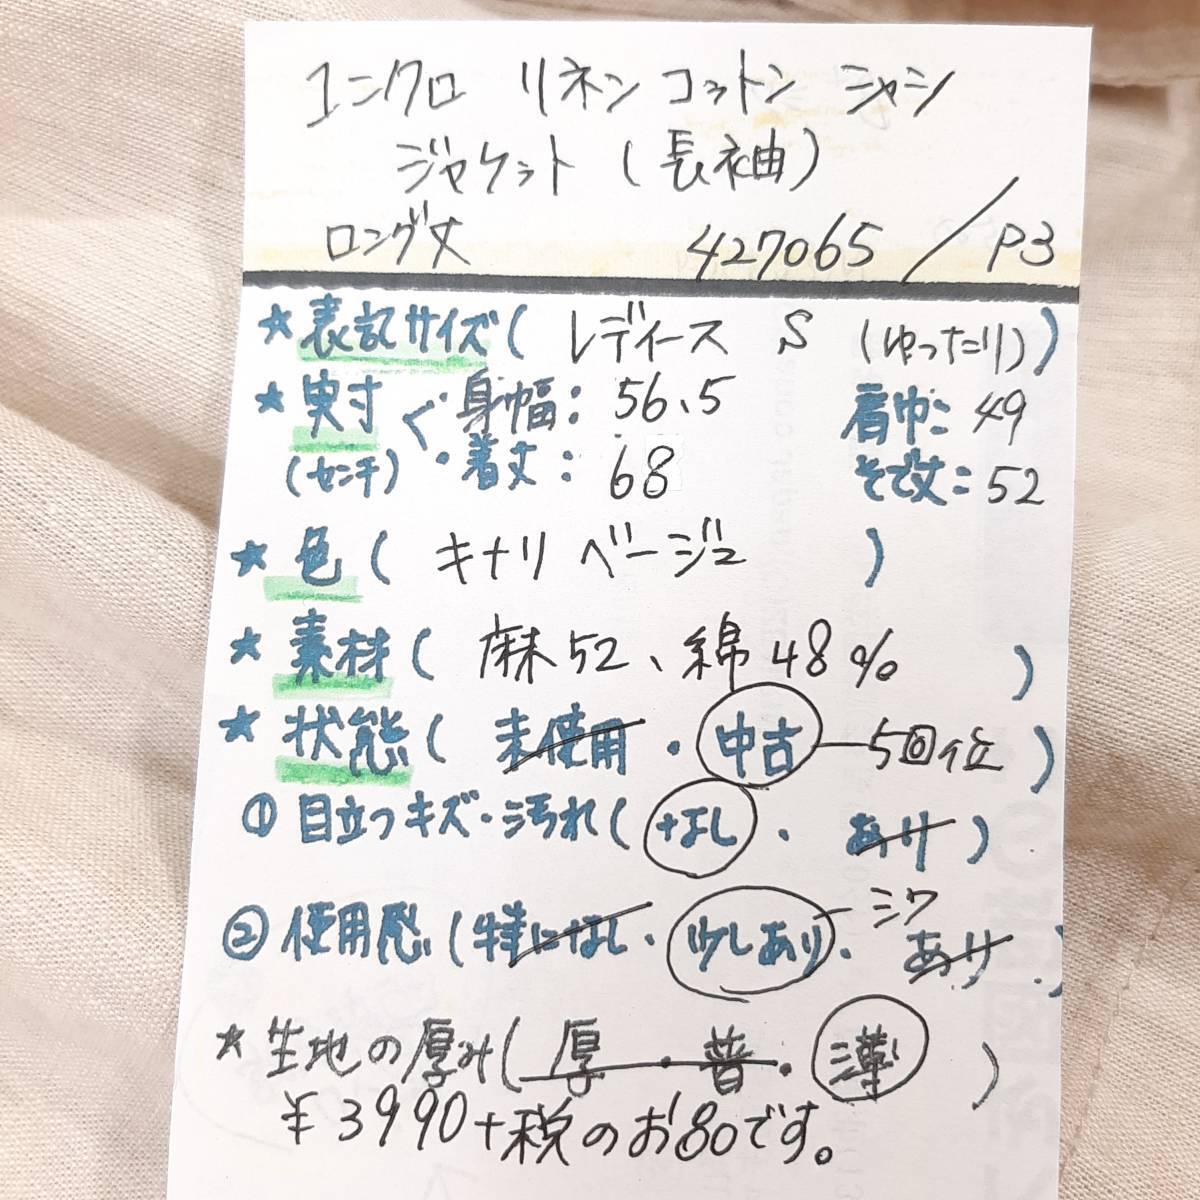 ユニクロ リネン コットン シャシ
ジャケット(長袖)
ロング丈 427065/P3
★表記サイズ( レディース S (ゆったり))
★実寸 身幅: 56.5 肩巾: 49
(センチ) ・着丈: 68 そで丈: 52
★色( キナリ ベージュ )
★素材( 麻52、綿48% )
★状態( 未使用・中古—5回位 )
①目立つキズ・汚れ(なし・あり)
②使用感(特になし・少しあり・シワ あり)
★生地の厚み(厚・普・薄)
¥3990+税のお品です。